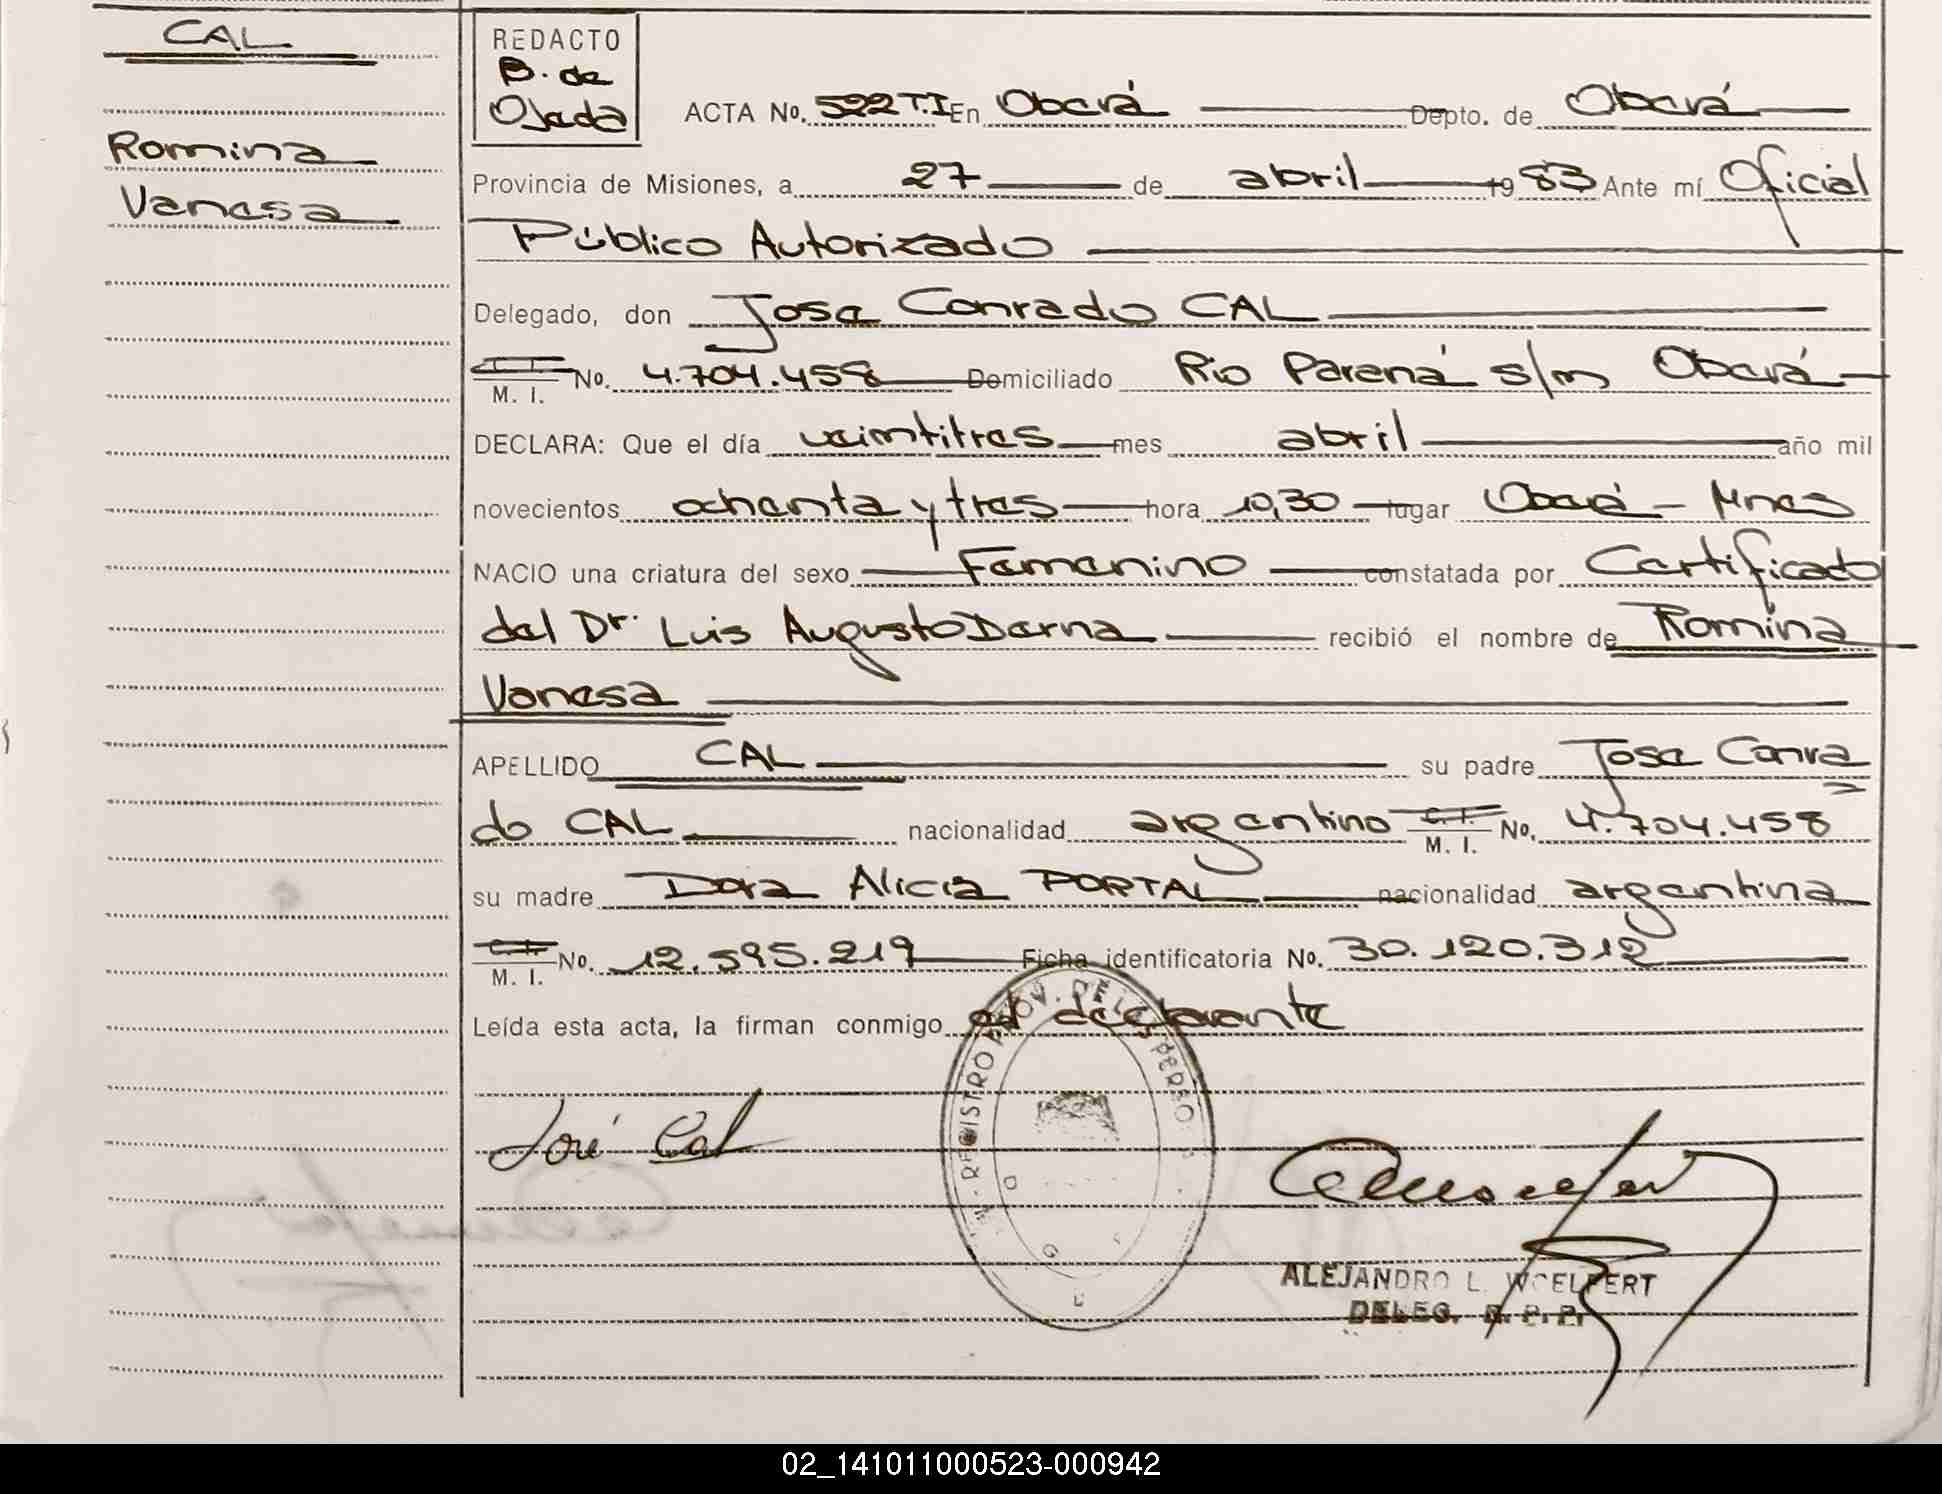 CAL
Romina
Vanesa
REDACTO
B. de
Ojeda
ACTA No. 522 T.I En Oberá Depto. de Oberá
Provincia de Misiones, a 27 de abril 1983 Ante mí Oficial
Público Autorizado
Delegado, don Jose Conrado CAL
C. I.
M. I. No. 4.704.458 Domiciliado Rio Paraná s/n Oberá
DECLARA: Que el día veintitres mes abril año mil
novecientos ochenta y tres hora 10,30 lugar Oberá - Mnes
NACIO una criatura del sexo Femenino constatada por Certificado
del Dr. Luis Augusto Derna recibió el nombre de Romina
Vanesa
APELLIDO CAL su padre Jose Conra
do CAL nacionalidad argentino C. I.
M. I. No. 4.704.458
su madre Dora Alicia PORTAL nacionalidad argentina
C. I.
M. I. No. 12.595.219 Ficha identificatoria No. 30.120.312
Leída esta acta, la firman conmigo el declarante
REGISTRO PROV. DE LAS PERSO
José Cal
ALEJANDRO L. WOELFERT
DELEG. R. P. P.
02_141011000523-000942